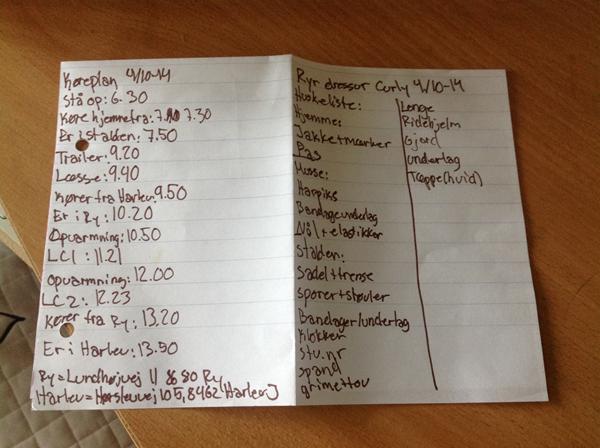 Køreplan 4/10-14
Stå op: 6.30
Køre hjemmefra: 7.30
Er i stalden: 7.50
Trailer: 9.20
Læsse: 9.40
Kører fra Harlev 9.50
Er i Ry: 10.20
Opvarmning: 10.50
LC1: 11.21
opvarmning: 12.00
LC2: 12.23
Kører fra Ry: 13.20
Er i Harlev: 13.50
Ry = Lundhøjvej 11 8680 Ry
Harlev = 105, 8462 Harlev J
Ryr dressur Curly 4/10-14
Huskeliste:
Hjemme:
Jakke+mærker
Pas
Musse:
Happiks
Bandageunderlag
Nål + elastikker
stalden:
sadel+trense
sporer+støvler
Bandager/underlag
Klokker
stv.nr
spand
grimettov
Longe
Ridehjelm
Gjord
underlag
Tæppe(hvid)